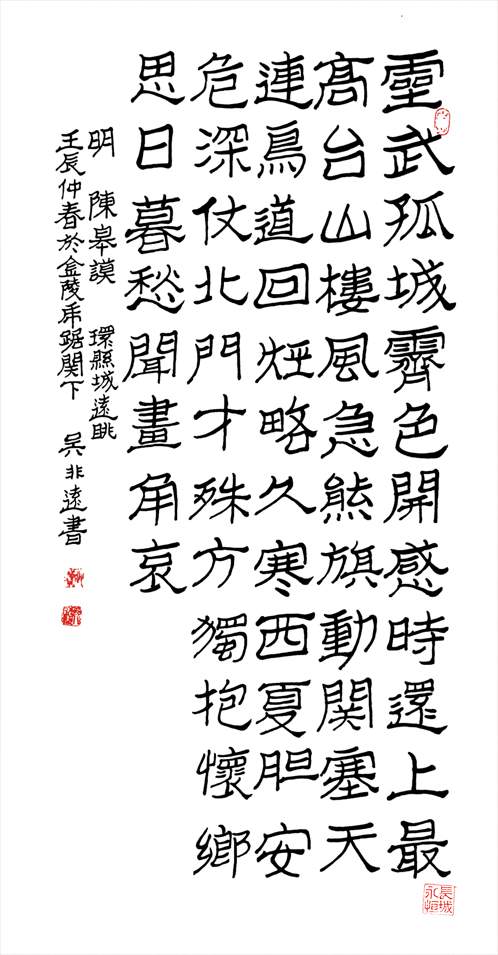 靈武孤城霽色開感時還上最
髙台山樓風急熊旗動関塞天
連鳥道回經略久寒西夏胆安
危深仗北門才殊方獨抱懷鄉
思日暮愁聞畫角哀
明 陳皋謨 環縣城遠眺
壬辰仲春於金陵虎踞関下 吴非遠書
長城永恒